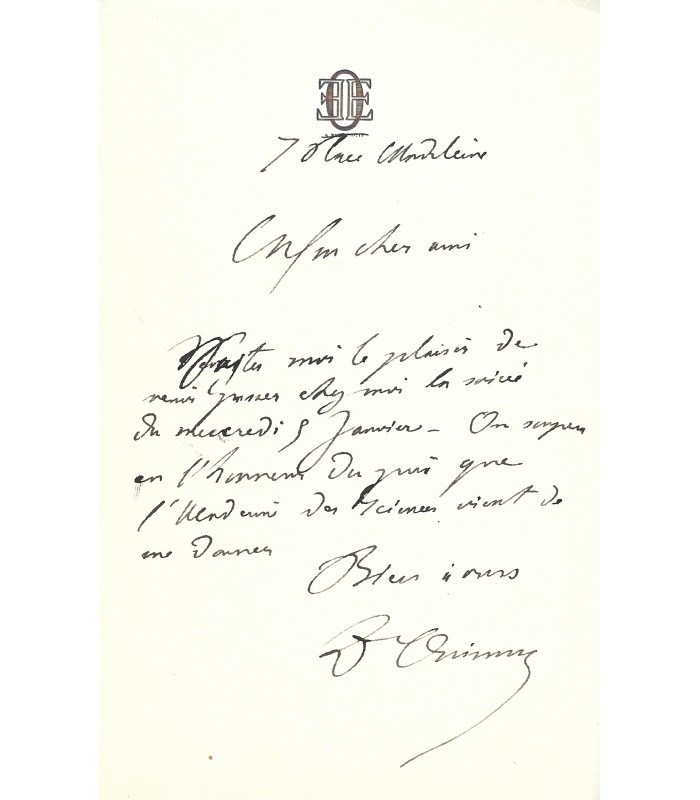 7 Place Madeleine
cher ami
Faites moi le plaisir de
venir passer chez moi la soirée
du mercredi 5 Janvier - On soupera
en l'honneur du prix que
l'Académie des Sciences vient de
me donner
Bien à vous
Dr Onimus